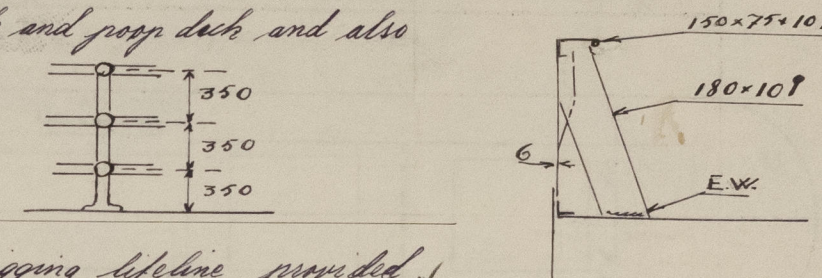 and poop deck and also
350
350
350
150×75×10
180×10
6
E.W.
lifeline provided